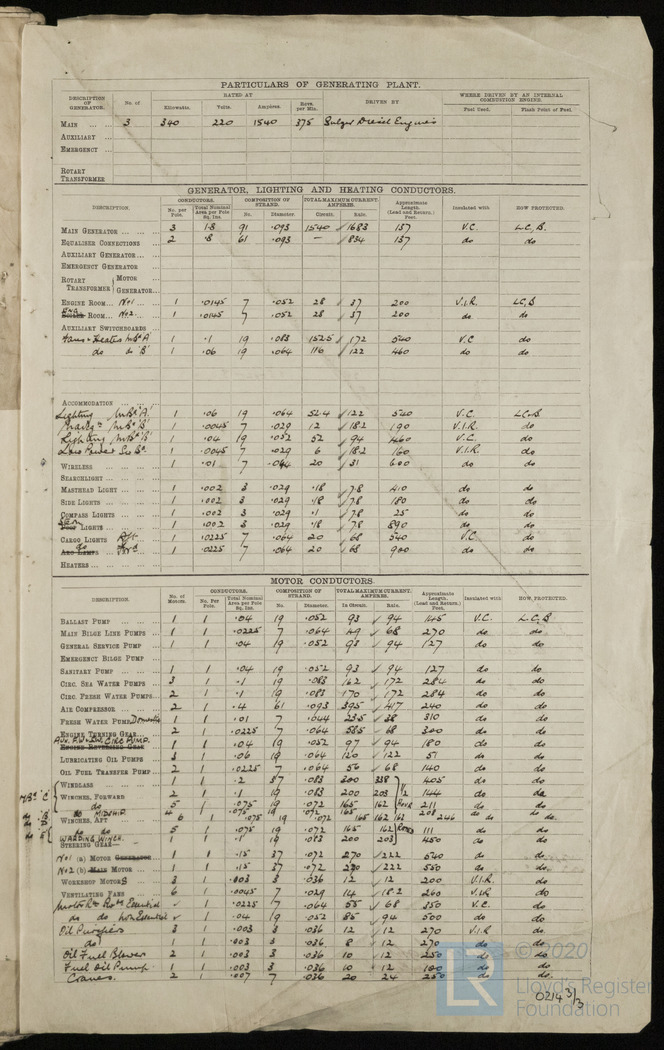 PARTICULARS OF GENERATING PLANT.
DESCRIPTION OF GENERATOR. No. of RATED AT DRIVEN BY WHERE DRIVEN BY AN INTERNAL COMBUSTION ENGINE.
Kilowatts. Volts. Ampères. Revs. per Min. Fuel Used. Flash Point of Fuel.
MAIN ... ... 3 340 220 1540 375 Sulzer Diesel Engines
AUXILIARY ...
EMERGENCY ...
ROTARY TRANSFORMER
GENERATOR, LIGHTING AND HEATING CONDUCTORS.
DESCRIPTION. CONDUCTORS. COMPOSITION OF STRAND. TOTAL MAXIMUM CURRENT. AMPERES. Approximate Length. (Lead and Return.) Feet. Insulated with HOW PROTECTED.
No. per Pole. Total Nominal Area per Pole Sq. Ins. No. Diameter. Circuit. Rule.
MAIN GENERATOR ... 3 1.8 91 .093 1540 1683 137 V.C. L.C.B.
EQUALISER CONNECTIONS ... 2 .8 61 .093 — 834 137 do do
AUXILIARY GENERATOR ...
EMERGENCY GENERATOR ...
ROTARY TRANSFORMER { MOTOR
GENERATOR...
ENGINE ROOM... No1 1 .0145 7 .052 28 37 200 V.I.R. L.C.B
ENG ROOM... No2 1 .0145 7 .052 28 37 200 do do
AUXILIARY SWITCHBOARDS
Fans & Heaters 'A' 1 .1 19 .083 152.5 172 540 V.C do
do do 'B' 1 .06 19 .064 116 122 460 do do
ACCOMMODATION ...
Lighting 'A' 1 .06 19 .064 52.4 122 540 V.C. L.C.B.
'B' 1 .0045 7 .029 12 18.2 190 V.I.R. do
Lighting 'B' 1 .04 19 .052 52 94 460 V.C. do
Low Power 1 .0045 7 .029 6 18.2 160 V.I.R. do
WIRELESS ... 1 .01 7 .044 20 31 600 do do
SEARCHLIGHT ...
MASTHEAD LIGHT ... 1 .002 3 .029 .18 7.8 410 do do
SIDE LIGHTS ... 1 .002 3 .029 .18 7.8 180 do do
COMPASS LIGHTS ... 1 .002 3 .029 .1 7.8 25 do do
LIGHTS ... 1 .002 3 .029 .18 7.8 890 do do
CARGO LIGHTS Aft 1 .0225 7 .064 20 68 540 V.C do
do For'd 1 .0225 7 .064 20 68 900 do do
HEATERS ...
MOTOR CONDUCTORS.
DESCRIPTION. No. of Motors. CONDUCTORS. COMPOSITION OF STRAND. TOTAL MAXIMUM CURRENT. AMPERES. Approximate Length. (Lead and Return.) Feet. Insulated with HOW PROTECTED.
No. Per Pole. Total Nominal Area per Pole Sq. Ins. No. Diameter. In Circuit. Rule.
BALLAST PUMP ... 1 1 .04 19 .052 93 94 145 V.C. L.C.B
MAIN BILGE LINE PUMPS ... 1 1 .0225 7 .064 49 68 270 do do
GENERAL SERVICE PUMP ... 1 1 .04 19 .052 93 94 127 do do
EMERGENCY BILGE PUMP ...
SANITARY PUMP ... 1 1 .04 19 .052 93 94 127 do do
CIRC. SEA WATER PUMPS ... 3 1 .1 19 .083 162 172 284 do do
CIRC. FRESH WATER PUMPS... 2 1 .1 19 .083 170 172 284 do do
AIR COMPRESSOR ... 2 1 .4 61 .093 395 417 240 do do
FRESH WATER PUMP Domestic 1 1 .01 7 .044 23.5 310 do do
ENGINE TURNING GEAR... 2 1 .0225 7 .064 58.5 68 300 do do
Aux. F.W & S.W. Circ Pump. 1 1 .04 19 .052 97 94 180 do do
ENGINE REVERSING GEAR
LUBRICATING OIL PUMPS 3 1 .06 19 .064 120 122 57 do do
OIL FUEL TRANSFER PUMP ... 2 1 .0225 7 .064 56 68 140 do do
WINDLASS ... 1 1 .2 37 .083 300 338 405 do do
WINCHES, FORWARD 2 1 .1 19 .083 200 203 144 do do
do 5 1 .075 19 .072 165 162 211 do do
do MIDSHIP 4 1 .075 19 .072 165 162 208 do do
WINCHES, AFT 6 1 .075 19 .072 165 162 246 do do
do 5 1 .075 19 .072 165 162 111 do do
WARPING WINCH. 1 1 .1 19 .083 200 203 450 do do
STEERING GEAR—
No1 (a) MOTOR GENERATOR 1 1 .15 37 .072 270 222 540 do do
No2 (b) MAIN MOTOR ... 1 1 .15 37 .072 270 222 550 do do
WORKSHOP MOTORS 1 1 .003 3 .036 12 12 200 V.I.R. do
VENTILATING FANS ... 6 1 .0045 7 .029 14 18.2 260 V.I.R. do
Essential 1 .0225 7 .064 55 68 350 V.C. do
do do Non Essential 1 .04 19 .052 85 94 500 do do
Oil Purifiers 3 1 .003 3 .036 12 12 270 V.I.R do
do 1 1 .003 3 .036 8 12 270 do do
Oil Fuel Blower 2 1 .003 3 .036 10 12 250 do do
Fuel Oil Pump. 1 1 .003 3 .036 10 12 100 do do
Cranes. 2 1 .007 7 .036 20 24 250 do do
© 2020
LR
Lloyd's Register
Foundation
0214 3/3